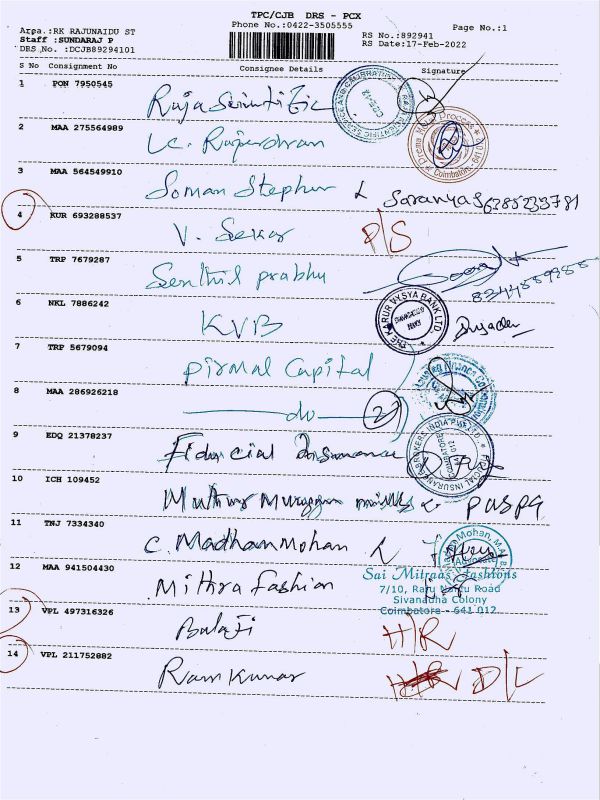 TPC/CJB DRS - PCX
Phone No.:0422-3505555
Page No.:1
Arpa.:RK RAJUNAIDU ST
Staff :SUNDARAJ P
DRS No. :DCJB89294101
RS No.:892941
RS Date:17-Feb-2022
S No Consignment No Consignee Details Signature
1 PON 7950545 Raja Scientific
2 MAA 275564989
3 MAA 564549910 Soman Stephen
4 KUR 693288537 V. Sekar D/S
5 TRP 7679287 Senthil prabhu
6 NKL 7886242 KVB
THE KARUR VYSYA BANK LTD
7 TRP 5679094 Pirmal Capital
8 MAA 286926218 do 2
9 EDQ 21378237
10 ICH 109452
11 TNJ 7334340 C. Madhan mohan
Advocate
12 MAA 941504430 Mithra fashion
Sai Mitraas Fashions
7/10, Raju Naidu Road
Sivanadha Colony
Coimbatore - 641 012
13 VPL 497316326 Balaji H/R
14 VPL 211752882 Ram Kumar D/L